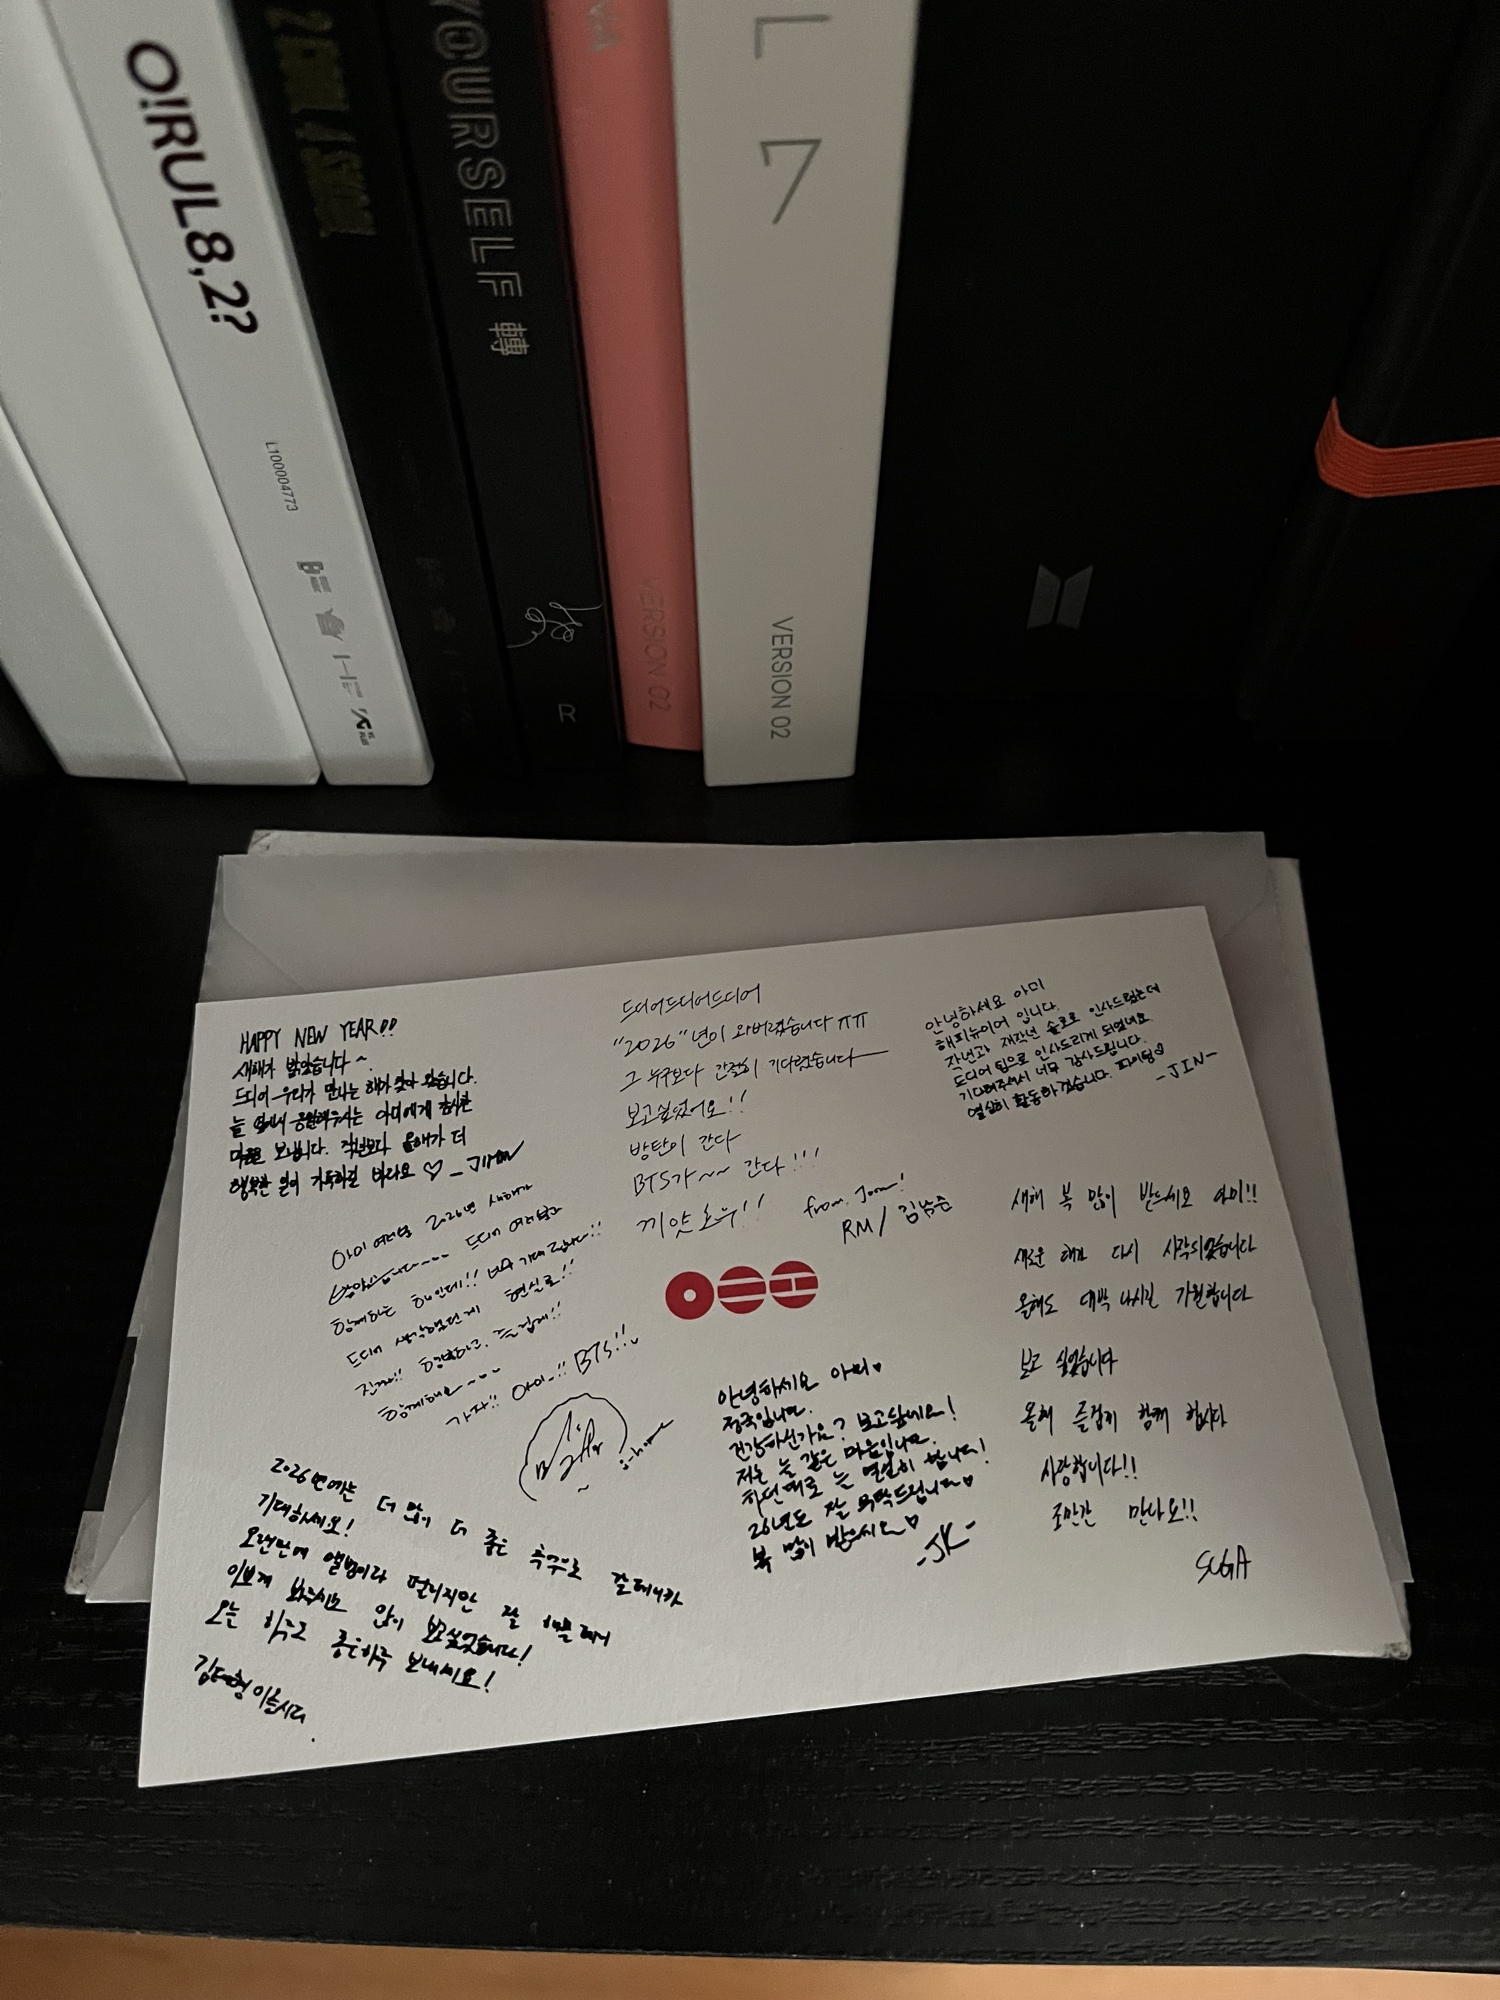 O!RUL8,2?
L100004773
YG
PLUS
YOURSELF 轉
R
VERSION 02
L
7
VERSION 02
HAPPY NEW YEAR!!
새해가 밝았습니다~
드디어 우리가 만나는 해가 찾아 왔습니다.
늘 옆에서 응원해주시는 아미에게 감사한
마음을 보냅니다. 작년보다 올해가 더
행복한 일이 가득하길 바라요 ♡ - JIMIN
드디어드디어드디어
"2026"년이 와버렸습니다 ㅠㅠ
그 누구보다 간절히 기다렸습니다
보고싶었어요!!
방탄이 간다
BTS가~~ 간다!!!
끼얏호우!!
from. Joon!
RM / 김남준
안녕하세요 아미
해피뉴이어 입니다.
작년과 재작년 솔로로 인사드렸는데
드디어 팀으로 인사드리게 되었네요
기다려주셔서 너무 감사드립니다.
열심히 활동하겠습니다. 파이팅♡
-JIN-
아미 여러분 2026년 새해가
밝았습니다~~~~ 드디어 여러분과
함께하는 해인데!! 너무 기대됩니다!!
드디어 생각했던게 현실로!!
진짜!! 행복하고, 즐겁게!!
함께해요~~~
가자!! 아미!! BTS!!
j-home
새해 복 많이 받으세요 아미!!
새로운 해가 다시 시작되었습니다
올해도 대박 나시길 기원합니다
보고 싶었습니다
올해 즐겁게 함께 합시다
사랑합니다!!
조만간 만나요!!
SUGA
안녕하세요 아미♥
정국입니다.
건강하신가요? 보고싶네요!
저는 늘 같은 마음입니다.
하던대로 늘 열심히 합니다!
26년도 잘 부탁드립니다♥
복 많이 받으세요♡
-JK-
2026년에는 더 많이 더 좋은 추억으로 갈테니까
기대하세요!
오랜만에 앨범이라 떨리지만 잘 해볼테니
이쁘게 봐주시고 많이 보고싶었습니다!
오늘 하루도 좋은하루 보내세요!
김태형이었습니다